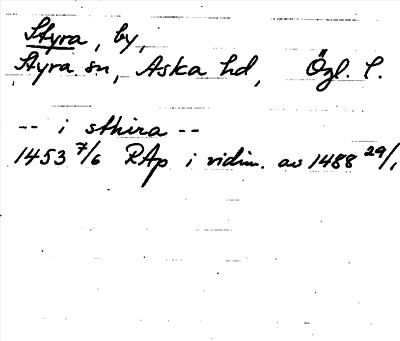 Styra, by,
Styra sn, Aska hd, Ögl. l.
-- i sthira --
1453 7/6 RAp i vidim. av 1488 29/1